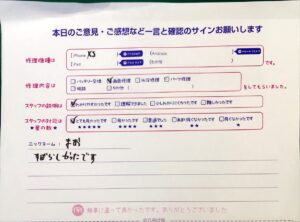 本日のご意見・ご感想など一言と確認のサインお願いします
修理機種は
iPhone XS
Android
iPad
その他
です。
修理内容は
バッテリー交換 画面修理 水没修理 パーツ修理
その他
をしてもらいました。
スタッフの説明は
わかりやすかったです 理解できました 少しわかりにくかったです 難しかったです
スタッフの対応は
とても良かったです 良かったです 普通でした あまり良くなかったです 良くなかったです
★星の数★
★★★★★ ★★★★ ★★★ ★★ ★
ニックネーム：
すばらしかったです
無事に直って良かったです。ありがとうございました。